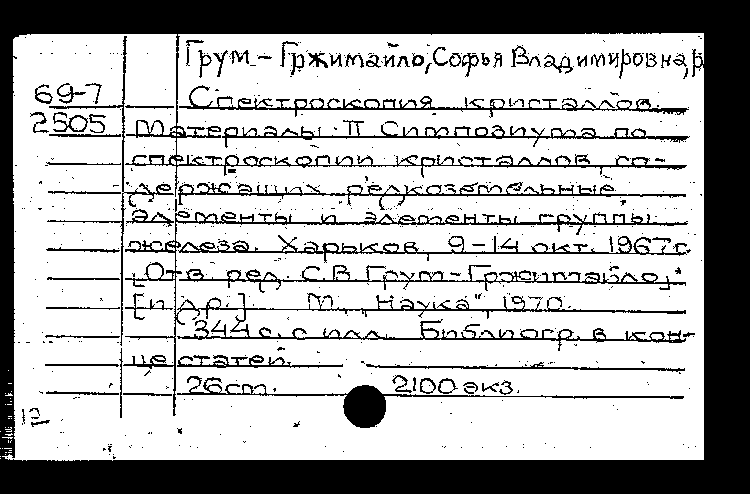 Грум-Гржимайло, Софья Владимировна, р
69-7 Спектроскопия кристаллов.
2505 Материалы II Симпозиума по
спектроскопии кристаллов, со-
держащих редкоземельные
элементы и элементы группы
железа. Харьков, 9-14 окт. 1967г.
„Отв. ред. С.В. Грум-Гржимайло„
[и др.] М., „Наука", 1970.
344 с. с илл. Библиогр. в кон-
це статей.
26 см. 2100 экз.